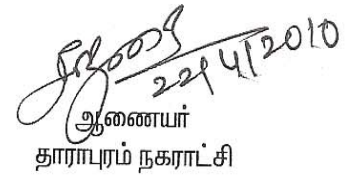 22/4/2010
ஆணையர்
தாராபுரம் நகராட்சி